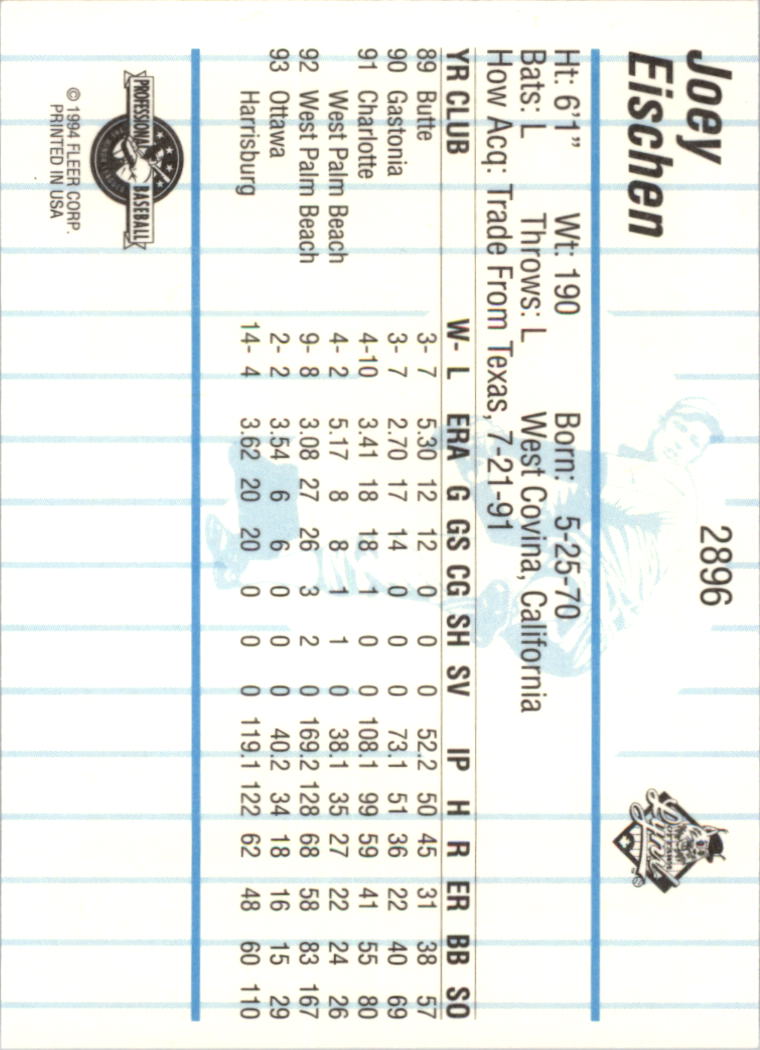 Joey
Eischen
2896
Ottawa
Lynx
Ht: 6'1" Wt: 190 Born: 5-25-70
Bats: L Throws: L West Covina, California
How Acq: Trade From Texas, 7-21-91
YR CLUB W- L ERA G GS CG SH SV IP H R ER BB SO
89 Butte 3- 7 5.30 12 12 0 0 0 52.2 50 45 31 38 57
90 Gastonia 3- 7 2.70 17 14 0 0 0 73.1 51 36 22 40 69
91 Charlotte 4-10 3.41 18 18 1 0 0 108.1 99 59 41 55 80
West Palm Beach 4- 2 5.17 8 8 1 1 0 38.1 35 27 22 24 26
92 West Palm Beach 9- 8 3.08 27 26 3 2 0 169.2 128 68 58 83 167
93 Ottawa 2- 2 3.54 6 6 0 0 0 40.2 34 18 16 15 29
Harrisburg 14- 4 3.62 20 20 0 0 0 119.1 122 62 48 60 110
PROFESSIONAL BASEBALL
THE MINOR LEAGUES
© 1994 FLEER CORP.
PRINTED IN USA